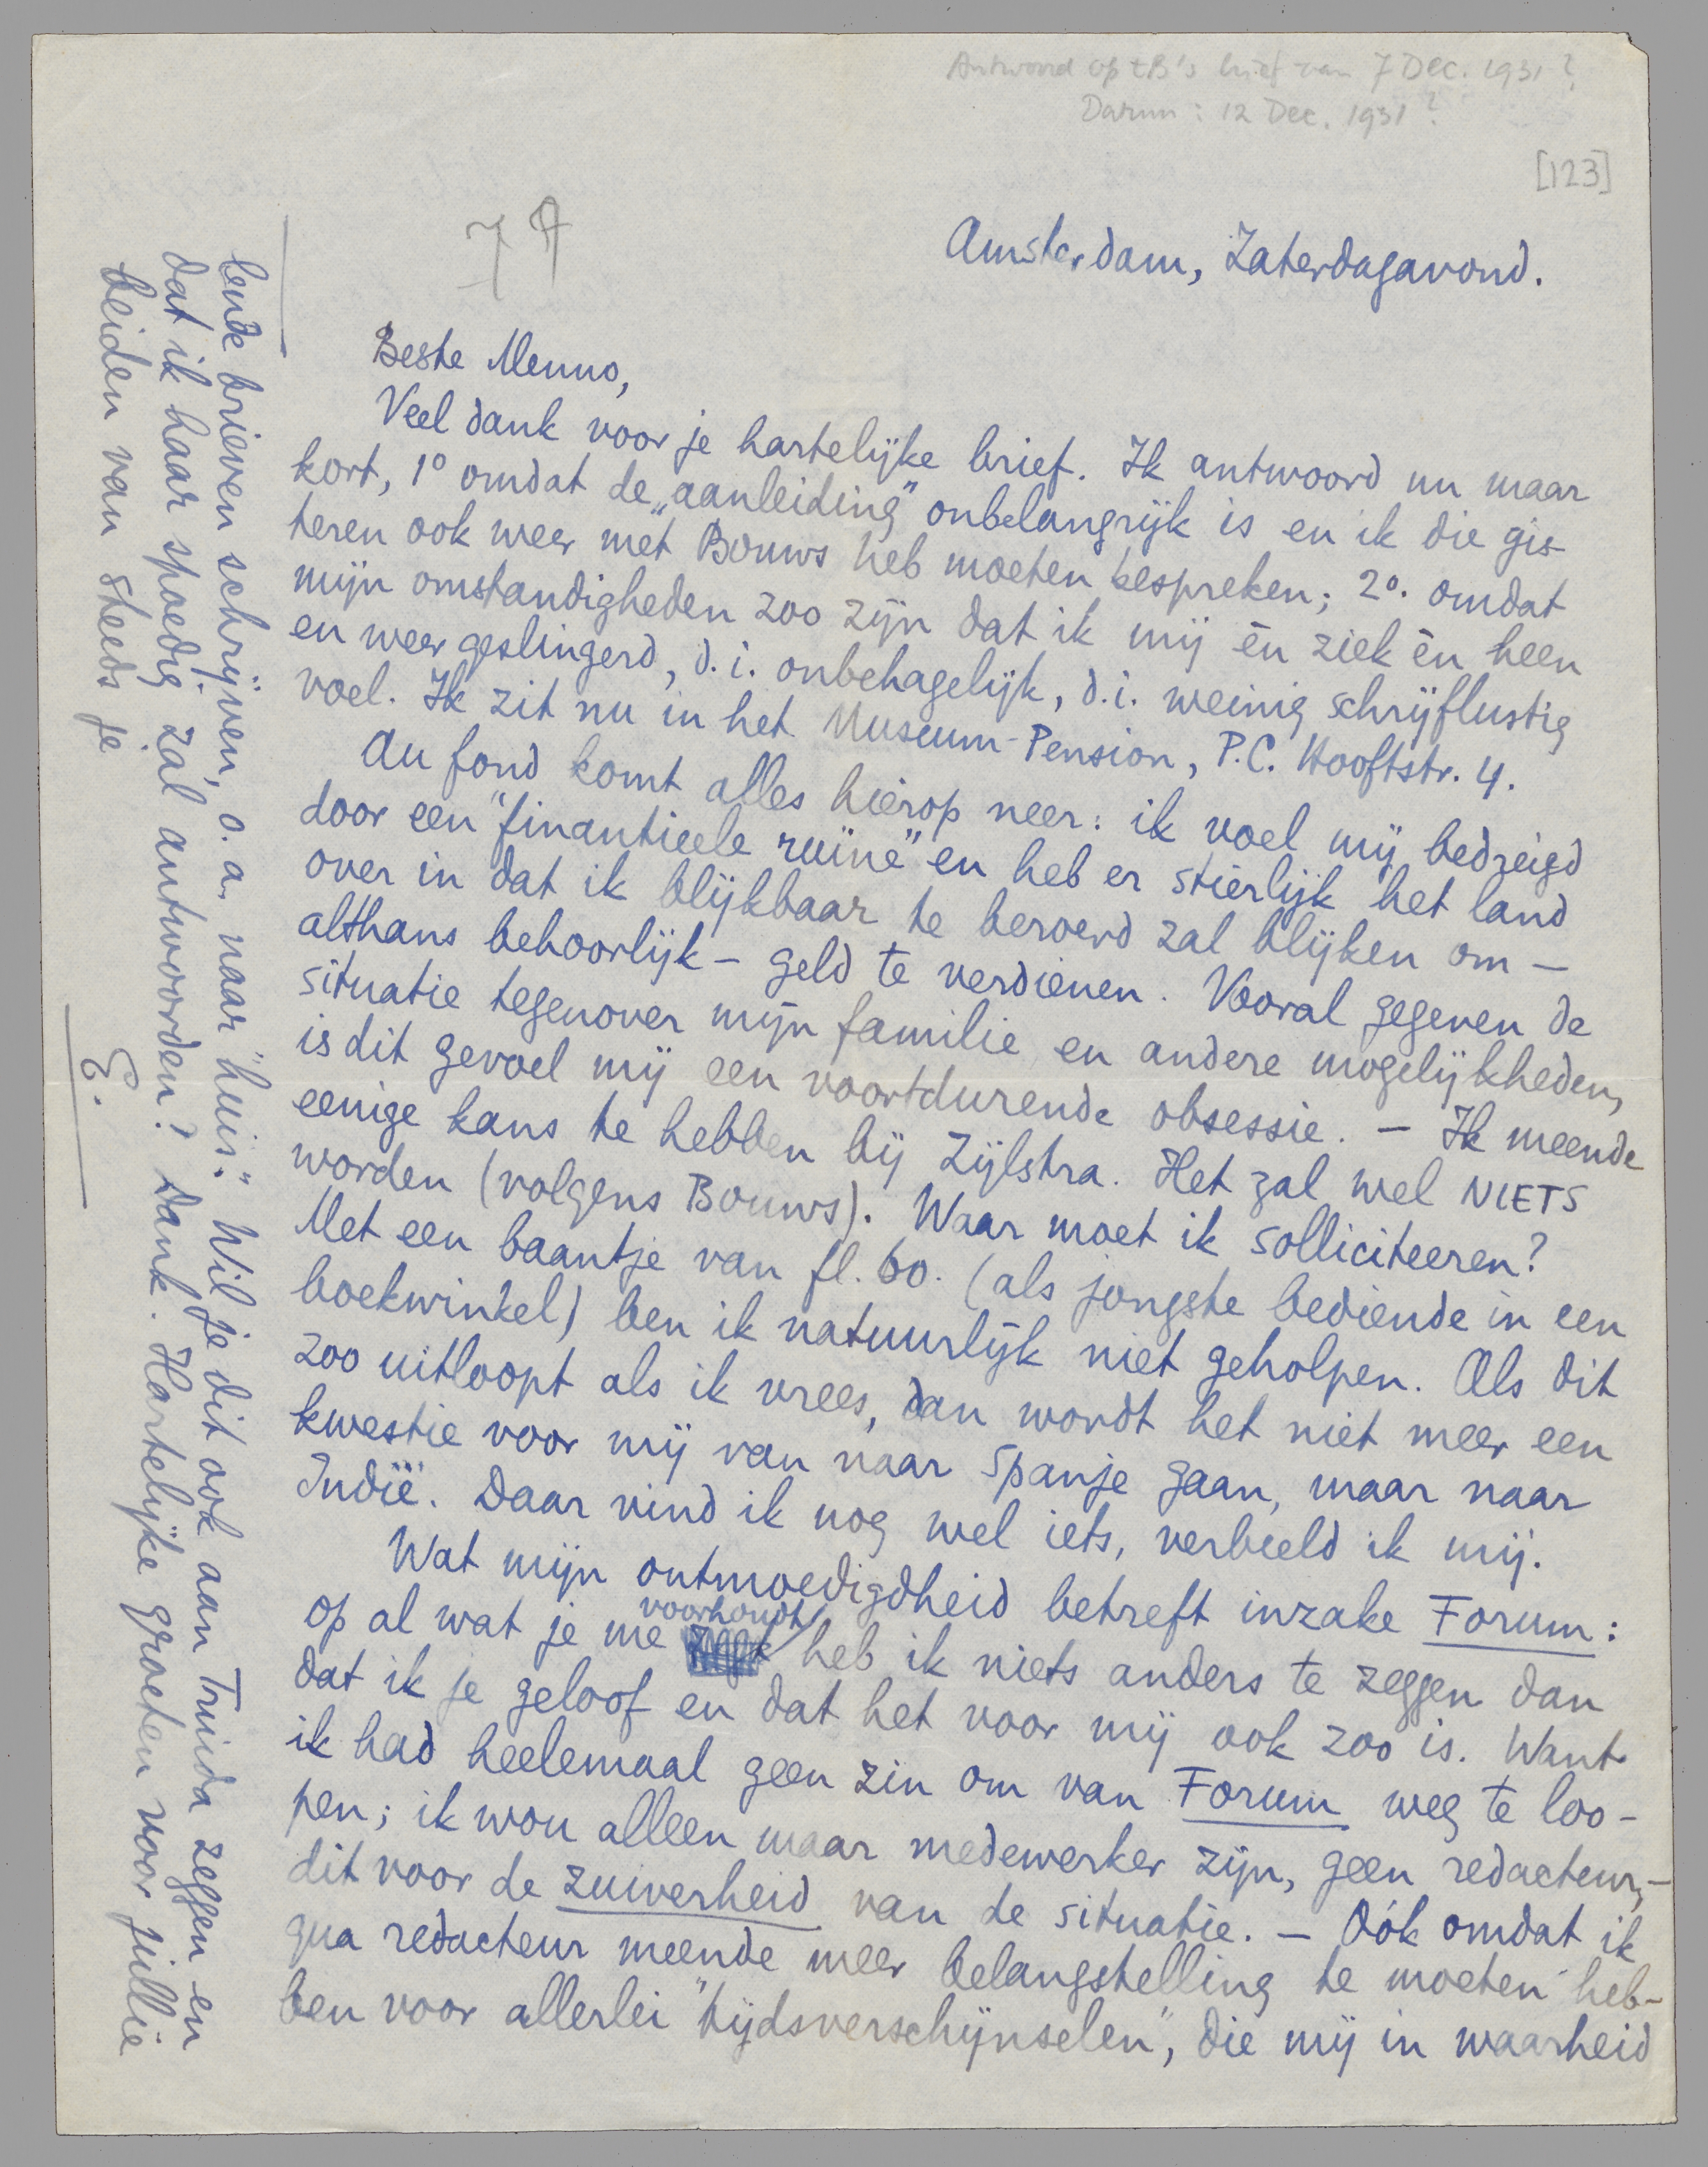 Antwoord op tB's brief van 7 Dec. 1931?
Datum: 12 Dec. 1931?
[123]
74
Amsterdam, Zaterdagavond.
Beste Menno,
Veel dank voor je hartelijke brief. Ik antwoord nu maar
kort, 1° omdat de „aanleiding" onbelangrijk is en ik die gis-
teren ook weer met Bouws heb moeten bespreken; 2°. omdat
mijn omstandigheden zoo zijn dat ik mij èn ziek èn heen
en weer geslingerd, d.i. onbehagelijk, d.i. weinig schrijflustig
voel. Ik zit nu in het Museum-Pension, P.C. Hooftstr. 4.
Au fond komt alles hierop neer: ik voel mij bedreigd
door een "finantieele ruïne" en heb er stierlijk het land
over in dat ik blijkbaar te beroerd zal blijken om —
althans behoorlijk — geld te verdienen. Vooral gegeven de
situatie tegenover mijn familie en andere mogelijkheden,
is dit gevoel mij een voortdurende obsessie. — Ik meende
eenige kans te hebben bij Zijlstra. Het zal wel NIETS
worden (volgens Bouws). Waar moet ik solliciteeren?
Met een baantje van fl. 60. (als jongste bediende in een
boekwinkel) ben ik natuurlijk niet geholpen. Als dit
zoo uitloopt als ik vrees, dan wordt het niet meer een
kwestie voor mij van naar Spanje gaan, maar naar
Indië. Daar vind ik nog wel iets, verbeeld ik mij.
Wat mijn ontmoedigdheid betreft inzake Forum:
op al wat je me voorhoudt heb ik niets anders te zeggen dan
dat ik je geloof en dat het voor mij ook zoo is. Want
ik had heelemaal geen zin om van Forum weg te loo-
pen; ik wou alleen maar medewerker zijn, geen redacteur, —
dit voor de zuiverheid van de situatie. — Oók omdat ik
qua redacteur meende meer belangstelling te moeten heb-
ben voor allerlei "tijdsverschijnselen", die mij in waarheid
lende brieven schrijven, o.a. naar "huis". Wil je dit ook aan Truida zeggen en
dat ik haar spoedig zal antwoorden? Dank. Hartelijke groeten voor jullie
beiden van steeds je
E.